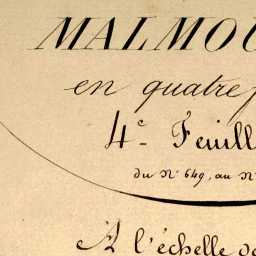 MALMOU
en quatre p
4e Feuill
du N° 649, au N°
A l'échelle de